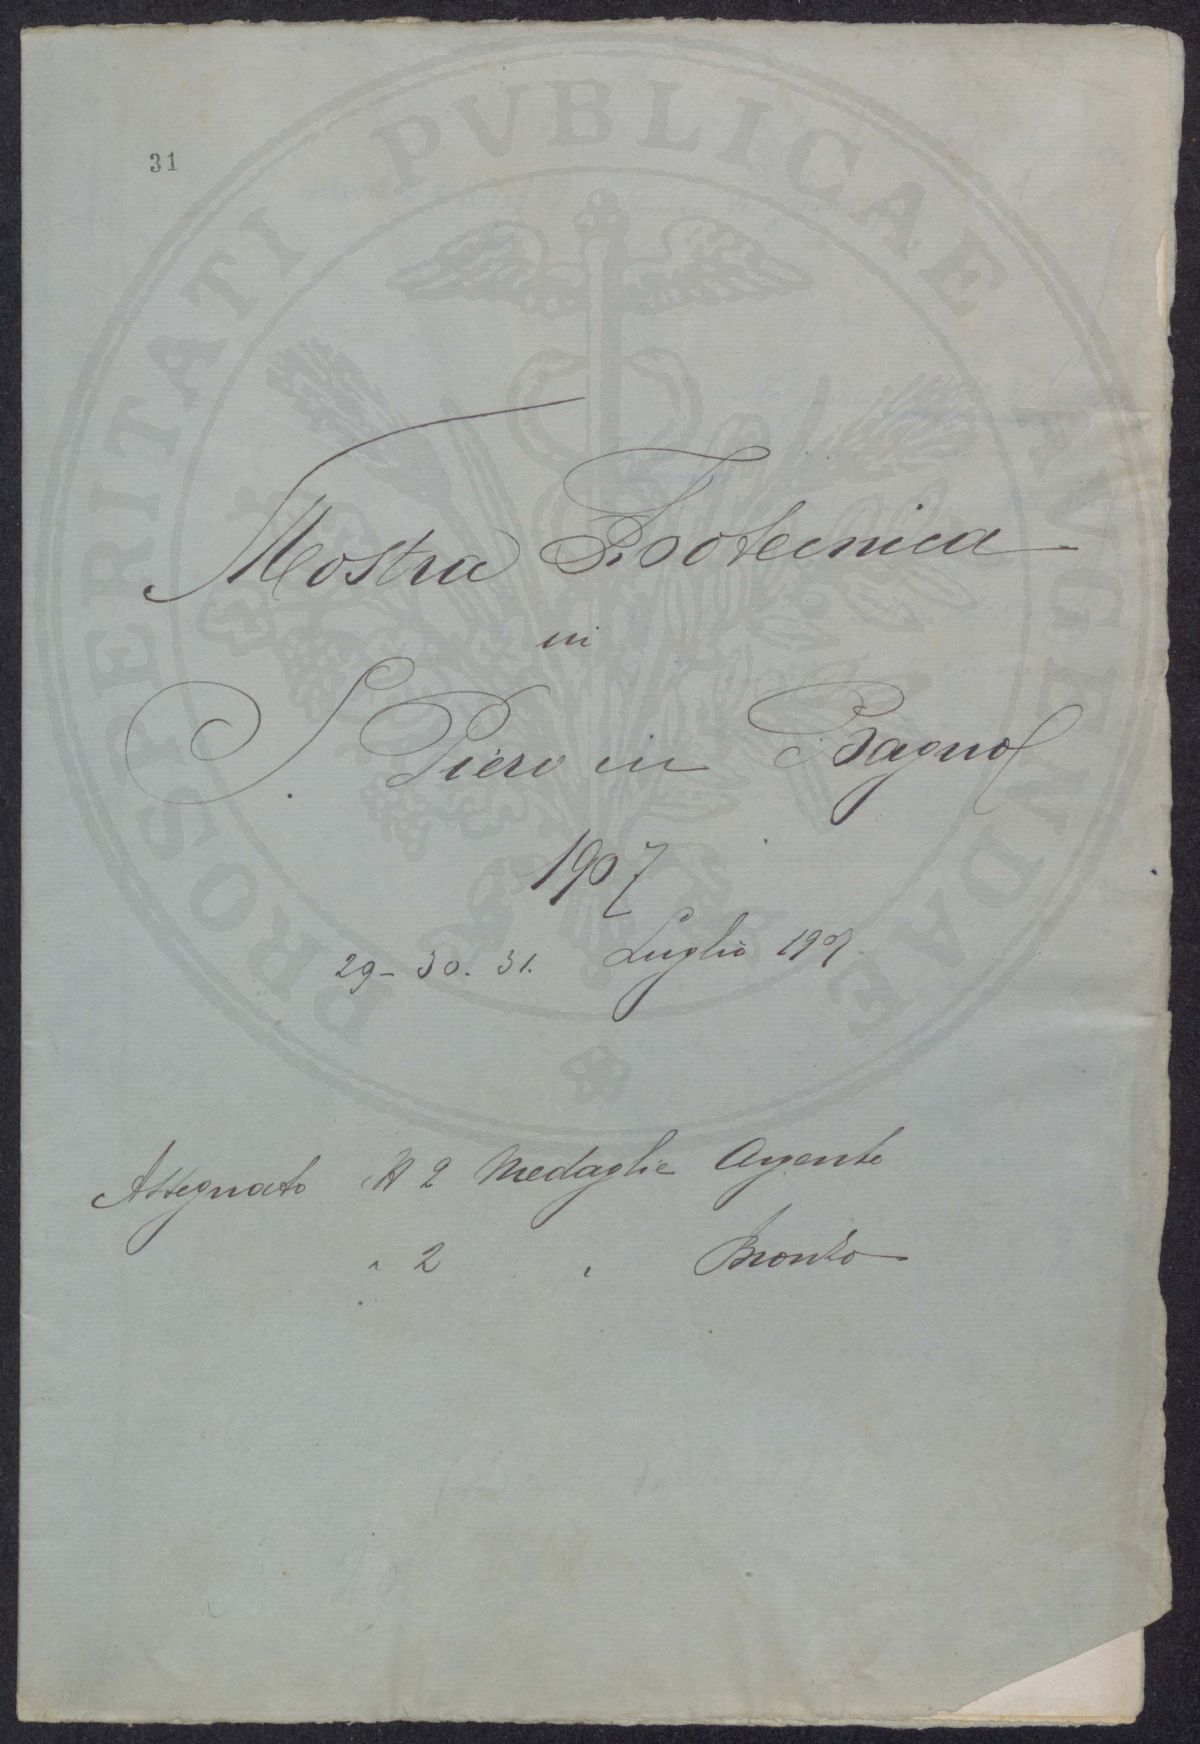 31
PROSPERITATI PVBLICAE AVGENDAE
Mostra Zootecnica
in
S. Piero in Bagno
1907
29 - 30. 31. Luglio 1907.
Assegnato N 2 Medaglie Argento
" 2 " Bronzo